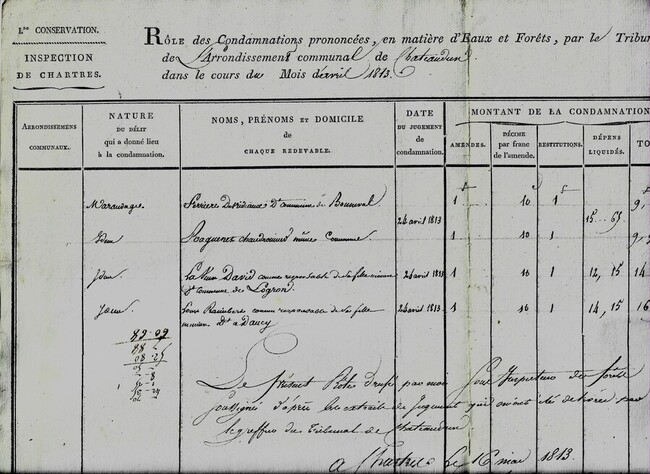 I.re CONSERVATION.
INSPECTION
DE CHARTRES.
RÔLE des Condamnations prononcées, en matière d'Eaux et Forêts, par le Tribun
de L'Arrondissement communal de Chateaudun
dans le cours du Mois d'avril 1813.
ARRONDISSEMENS COMMUNAUX.
NATURE
DU DÉLIT
qui a donné lieu
à la condamnation.
NOMS, PRÉNOMS ET DOMICILE
de
CHAQUE REDEVABLE.
DATE
DU JUGEMENT
de
condamnation.
MONTANT DE LA CONDAMNATION
AMENDES.
DÉCIME
par franc
de l'amende.
RESTITUTIONS.
DÉPENS
LIQUIDÉS.
TO
Maraudages
commune de Bonneval
24 avril 1813
1 10 1 15 . 65 9,
Idem
même Commune
1 10 1 9,
Idem
La Veuve David comme responsable de sa fille mineure
de Logron
24 avril 1813
1 10 1 12, 15 14
Idem
Louis Raimbert comme responsable de sa fille
mineure Dt a Dancy
24 avril 1813
1 10 1 14, 15 16
Le présent Rôle par moi Sous Inspecteur des forêts
soussigné d'après les extraits de Jugement qui m'ont été délivrés par
le greffier du Tribunal de Chateaudun
a Chartres le 16 mai 1813.